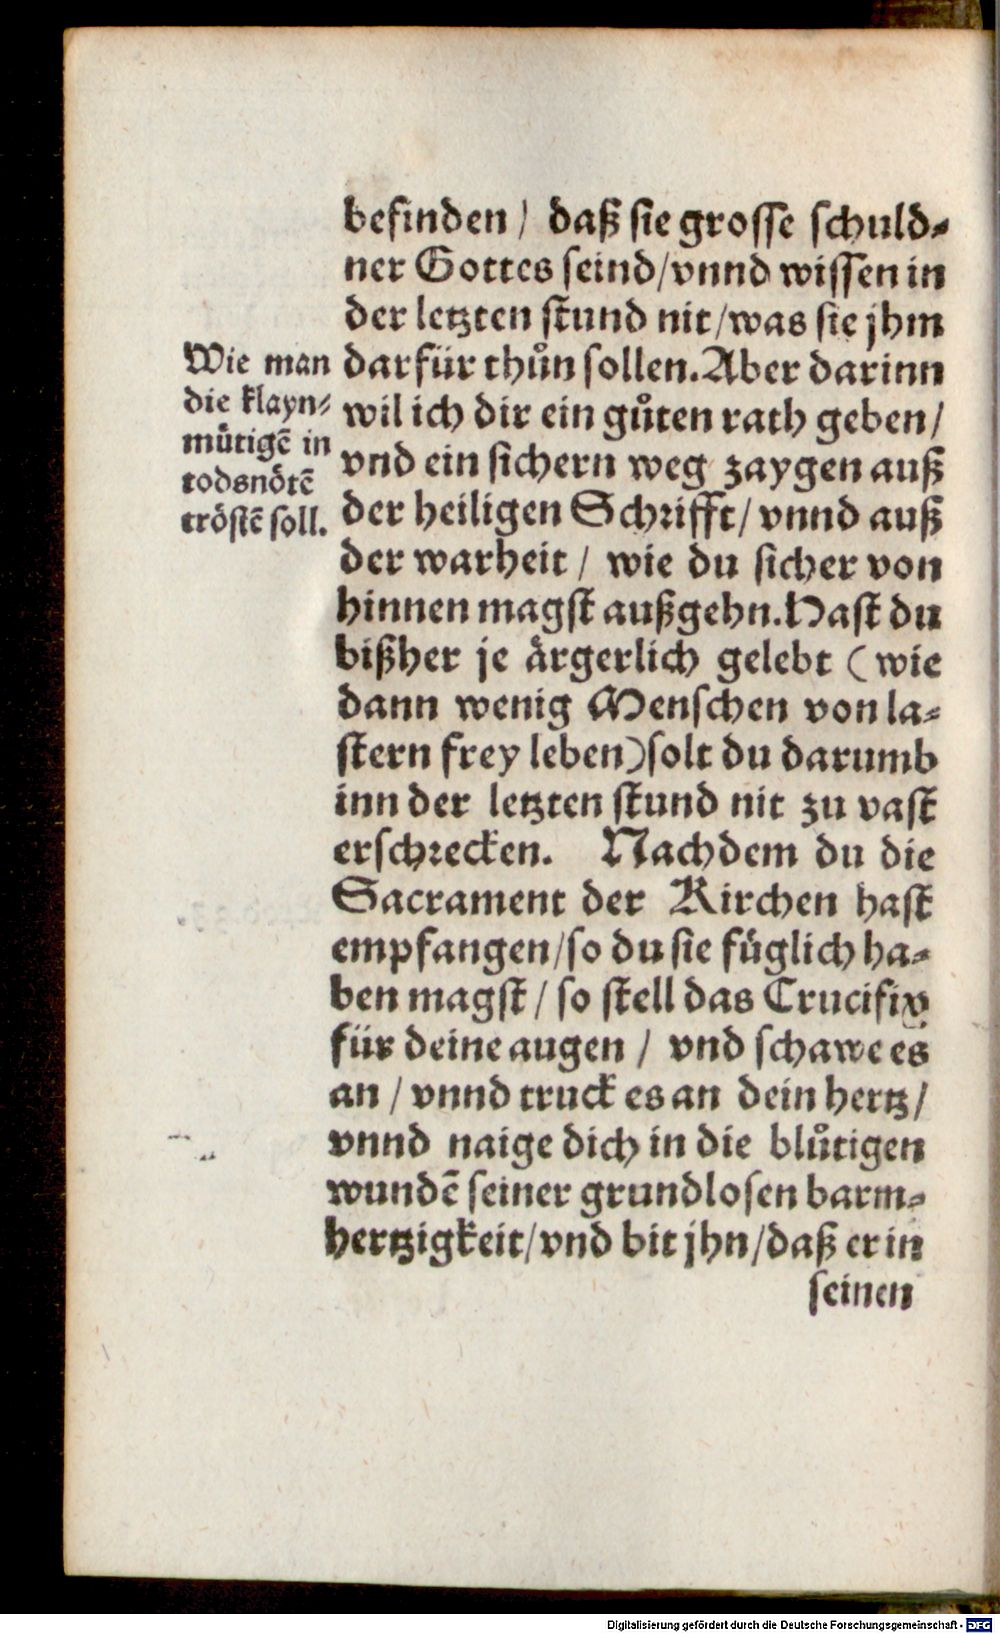 befinden / daß sie grosse schuld⸗
ner Gottes seind/vnnd wissen in
der letzten stund nit/was sie jhm
darfür thůn sollen. Aber darinn
wil ich dir ein gůten rath geben/
vnd ein sichern weg zaygen auß
der heiligen Schrifft/ vnnd auß
der warheit / wie du sicher von
hinnen magst außgehn. Hast du
bißher je ärgerlich gelebt (wie
dann wenig Menschen von la⸗
stern frey leben) solt du darumb
inn der letzten stund nit zu vast
erschrecken. Nachdem du die
Sacrament der Kirchen hast
empfangen/so du sie füglich ha⸗
ben magst / so stell das Crucifix
für deine augen / vnd schawe es
an / vnnd truck es an dein hertz/
vnnd naige dich in die blůtigen
wundē seiner grundlosen barm⸗
hertzigkeit/vnd bit jhn/daß er in
seinen
Wie man
die klayn⸗
mütigē in
todsnötē
tröstē soll.
Digitalisierung gefördert durch die Deutsche Forschungsgemeinschaft - DFG